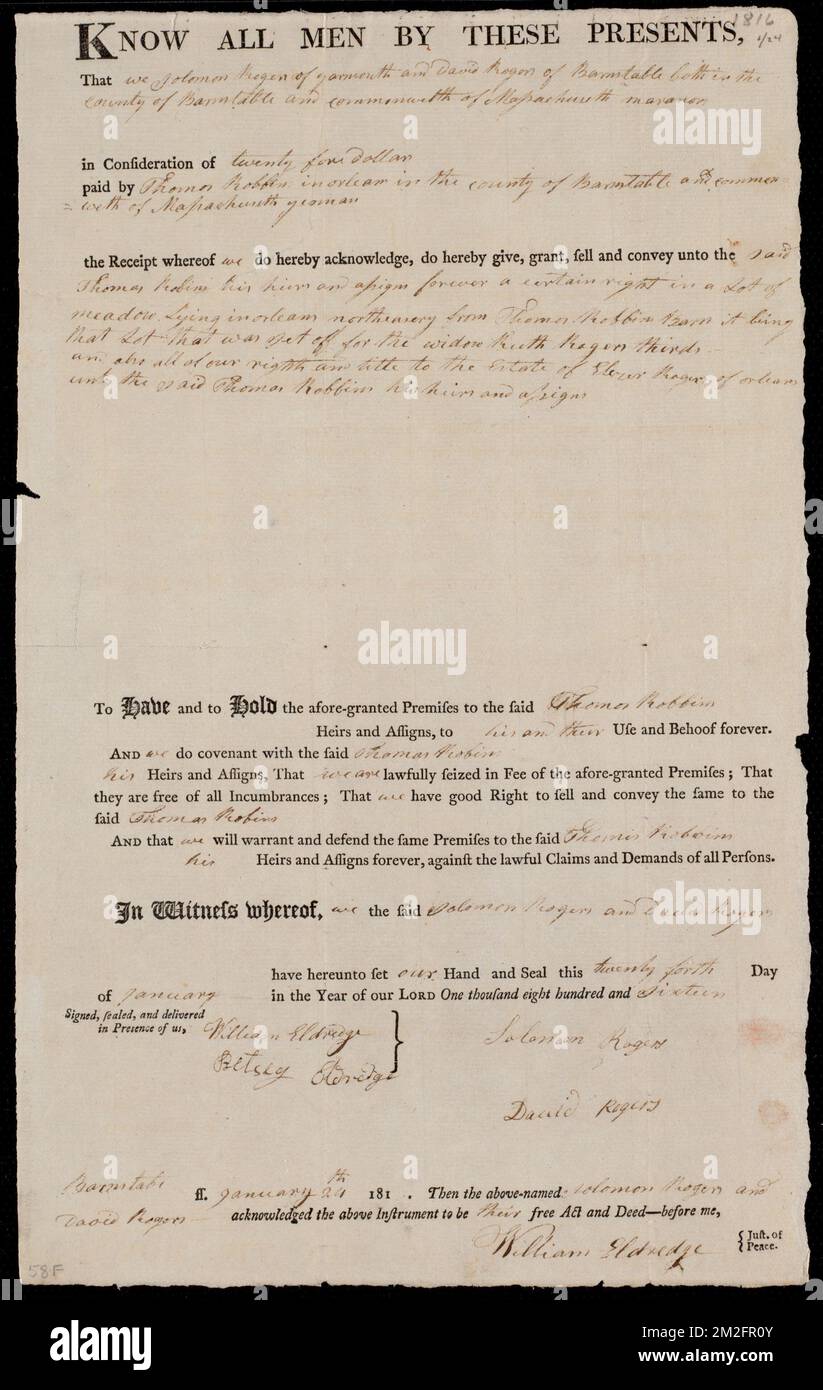 1816
1/24
KNOW ALL MEN BY THESE PRESENTS,
That we Solomon Rogers of yarmouth and David Rogers of Barnstable both in the
county of Barnstable and commonwelth of Massachuseth
in Conſideration of twenty fore dollar
paid by Thomas Robbins in orleans in the county of Barnstable and common=
=welth of Massachuseth yeman
the Receipt whereof we do hereby acknowledge, do hereby give, grant, ſell and convey unto the said
Thomas Robins his hiers and assigns forever a certain right in a Lot of
meadow Lying in orleans from Thomas Robbins Barn it being
that Lot that was set off for the widow Ruth Rogers thirds
and also all of our rights and title to the Estate of Rogers of orleans
unto the said Thomas Robbins his hiers and assigns
To Have and to Hold the afore-granted Premiſes to the ſaid Thomas Robbins
Heirs and Aſſigns, to his and their Uſe and Behoof forever.
AND we do covenant with the ſaid Thomas Robins
his Heirs and Aſſigns, That we are lawfully ſeized in Fee of the afore-granted Premiſes ; That
they are free of all Incumbrances ; That we have good Right to ſell and convey the ſame to the
ſaid Thomas Robins
AND that we will warrant and defend the ſame Premiſes to the ſaid Thomas Robbins
his Heirs and Aſſigns forever, againſt the lawful Claims and Demands of all Perſons.
In Witneſs whereof, we the ſaid Solomon Rogers and David Rogers
have hereunto ſet our Hand and Seal this twenty forth Day
of January in the Year of our LORD One thouſand eight hundred and Sixteen
Signed, ſealed, and delivered
in Preſence of us,
William Eldredge
Betsey Eldredge
Solomon Rogers
David Rogers
Barnstabe ſſ. January 24th 181 . Then the above-named Solomon Rogers and
David Rogers acknowledged the above Inſtrument to be their free Act and Deed—before me,
William Eldredge { Juſt. of Peace.
58F
alamy
alamy
Image ID: 2M2FR0Y
www.alamy.com